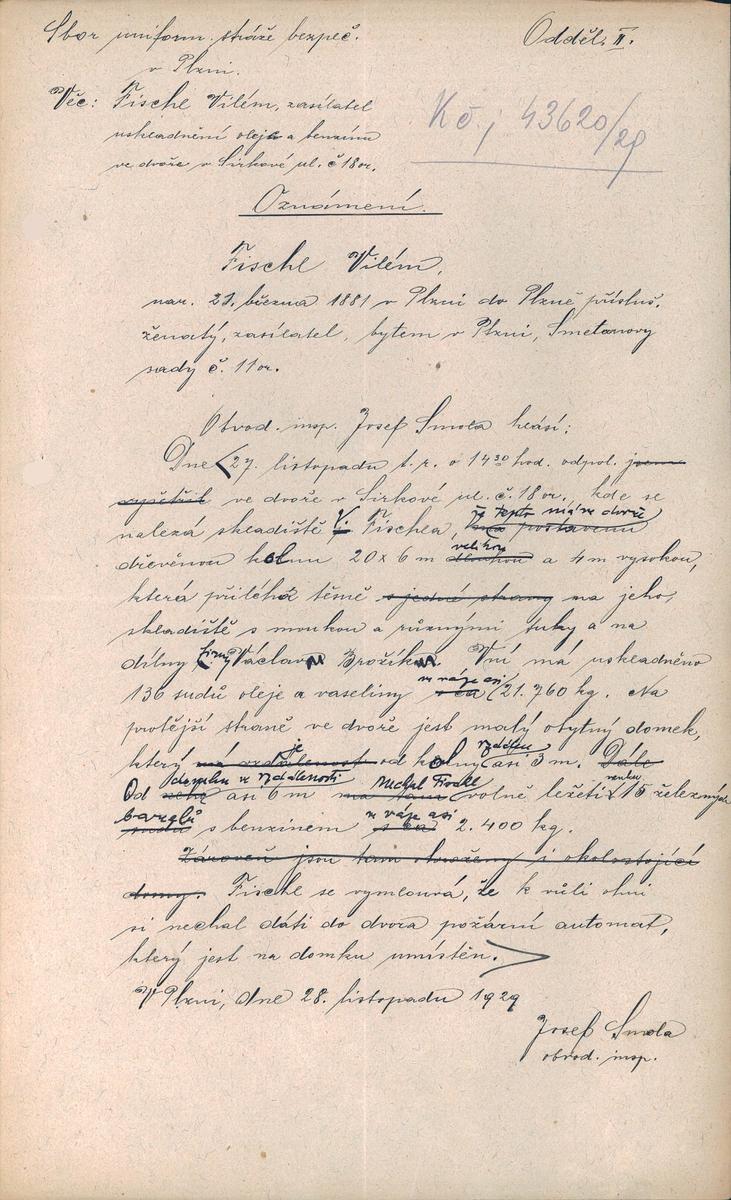 Sbor uniform. stráže bezpeč.
v Plzni.
Odděl. II.
Věc: Fischl Vilém, zasílatel
uskladnění oleje a benzinu
ve dvoře v Sirkové ul. č 18 or.
Kč.j 43620/29
Oznámení.
Fischl Vilém,
nar. 21. března 1881 v Plzni do Plzně přísluš.
ženatý, zasílatel, bytem v Plzni, Smetanovy
sady č. 11 or.
Obvod. insp. Josef Smola hlásí:
Dne 27. listopadu t. r. o 14 30 hod. odpol. jsem
vyšetřil ve dvoře v Sirkové ul. č. 18 or. kde se
nalezá skladiště V. Fischla, že tento má ve dvoře postavenu
dřevěnou kolnu 20 x 6 m dlouhou velikou a 4 m vysokou,
která přiléhá těmě s jedné strany na jeho
skladiště s moukou a různými tuky a na
dílny firmy Václava Brožíka. V ní má uskladněno
136 sudů oleje a vaseliny v váze asi 21.760 kg. Na
protější straně ve dvoře jest malý obytný domek,
který má vzdálenost je od kolny vzdálen asi 3 m. Dále
Od domku v vzdálenosti asi 6 m má tam nechal Fischl volně ležeti venku 15 železných
sudů barelů s benzinem v váze asi 2.400 kg.
Zároveň jsou tam ohroženy i okolostojící
domy. Fischl se vymlouvá, že k vůli ohni
si nechal dáti do dvora požární automat,
který jest na domku umístěn.
V Plzni, dne 28. listopadu 1929
Josef Smola
obvod. insp.